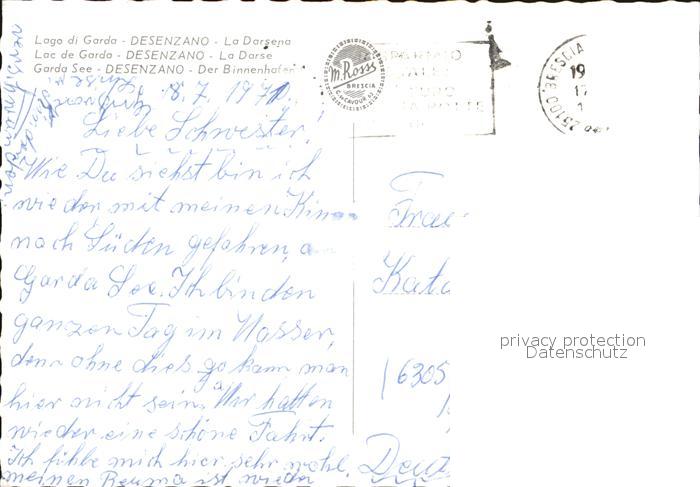 Lago di Garda - DESENZANO - La Darsena
Lac de Garda - DESENZANO - La Darse
Garda See - DESENZANO - Der Binnenhafen
M. Rossi
BRESCIA
C. CAVOUR
25100 BRESCIA
19
18.7.1971.
Liebe Schwester!
Wie Du siehst bin ich
wieder mit meinen Kin
nach Süden gefahren, a
Garda See. Ich bin den
ganzen Tag im Wasser,
denn ohne dies. kann man
hier nicht sein. Wir hatten
wieder eine schöne Fahrt.
Ich fühle mich hier sehr wohl,
meinen Reuma ist wieder
verschwunden.
Frau
Kata
6305
Deu
privacy protection
Datenschutz